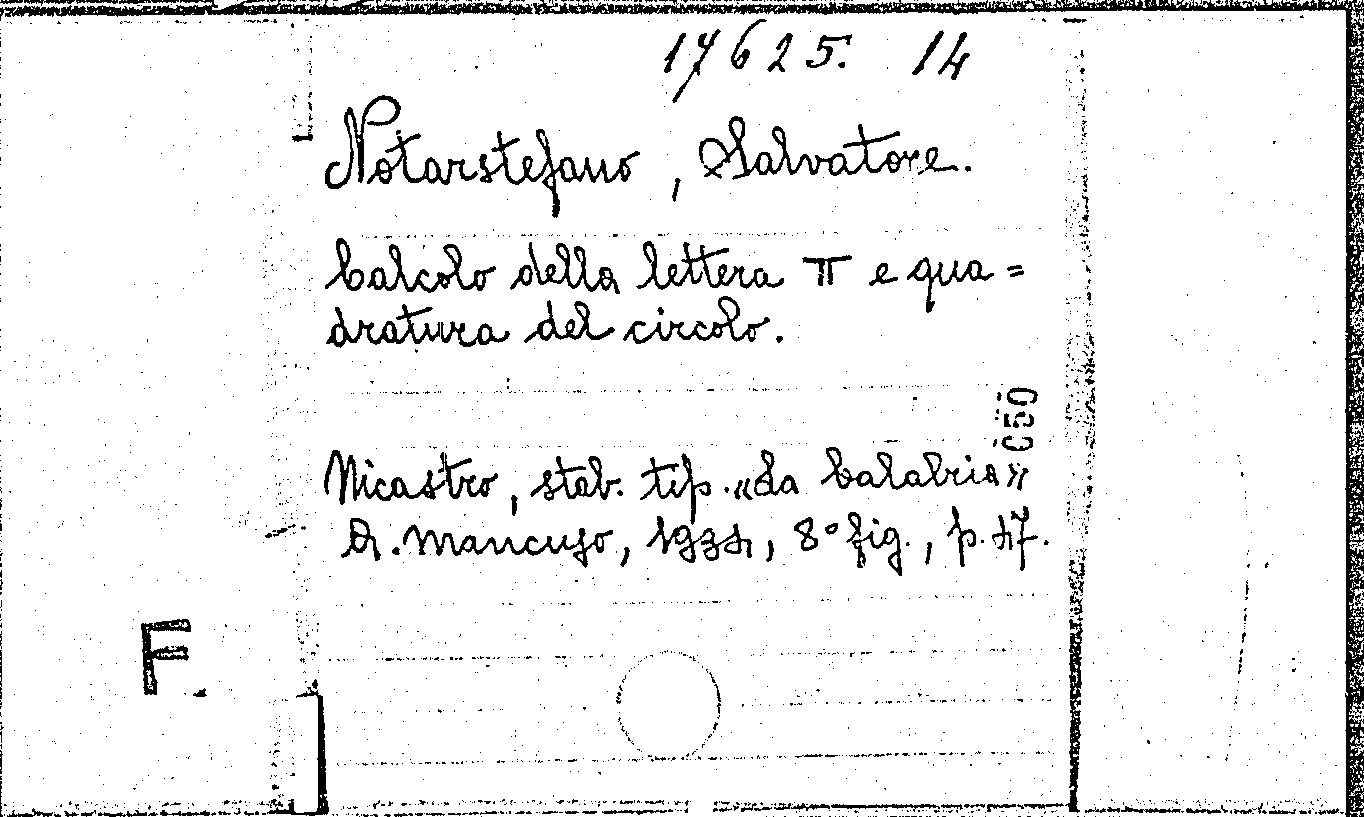 17625. 14
Notarstefano, Salvatore.
Calcolo della lettera π e qua=
dratura del circolo.
Nicastro, stab. tip. «La Calabria»
A. Mancuso, 1934, 8° fig., p. 47.
050
F